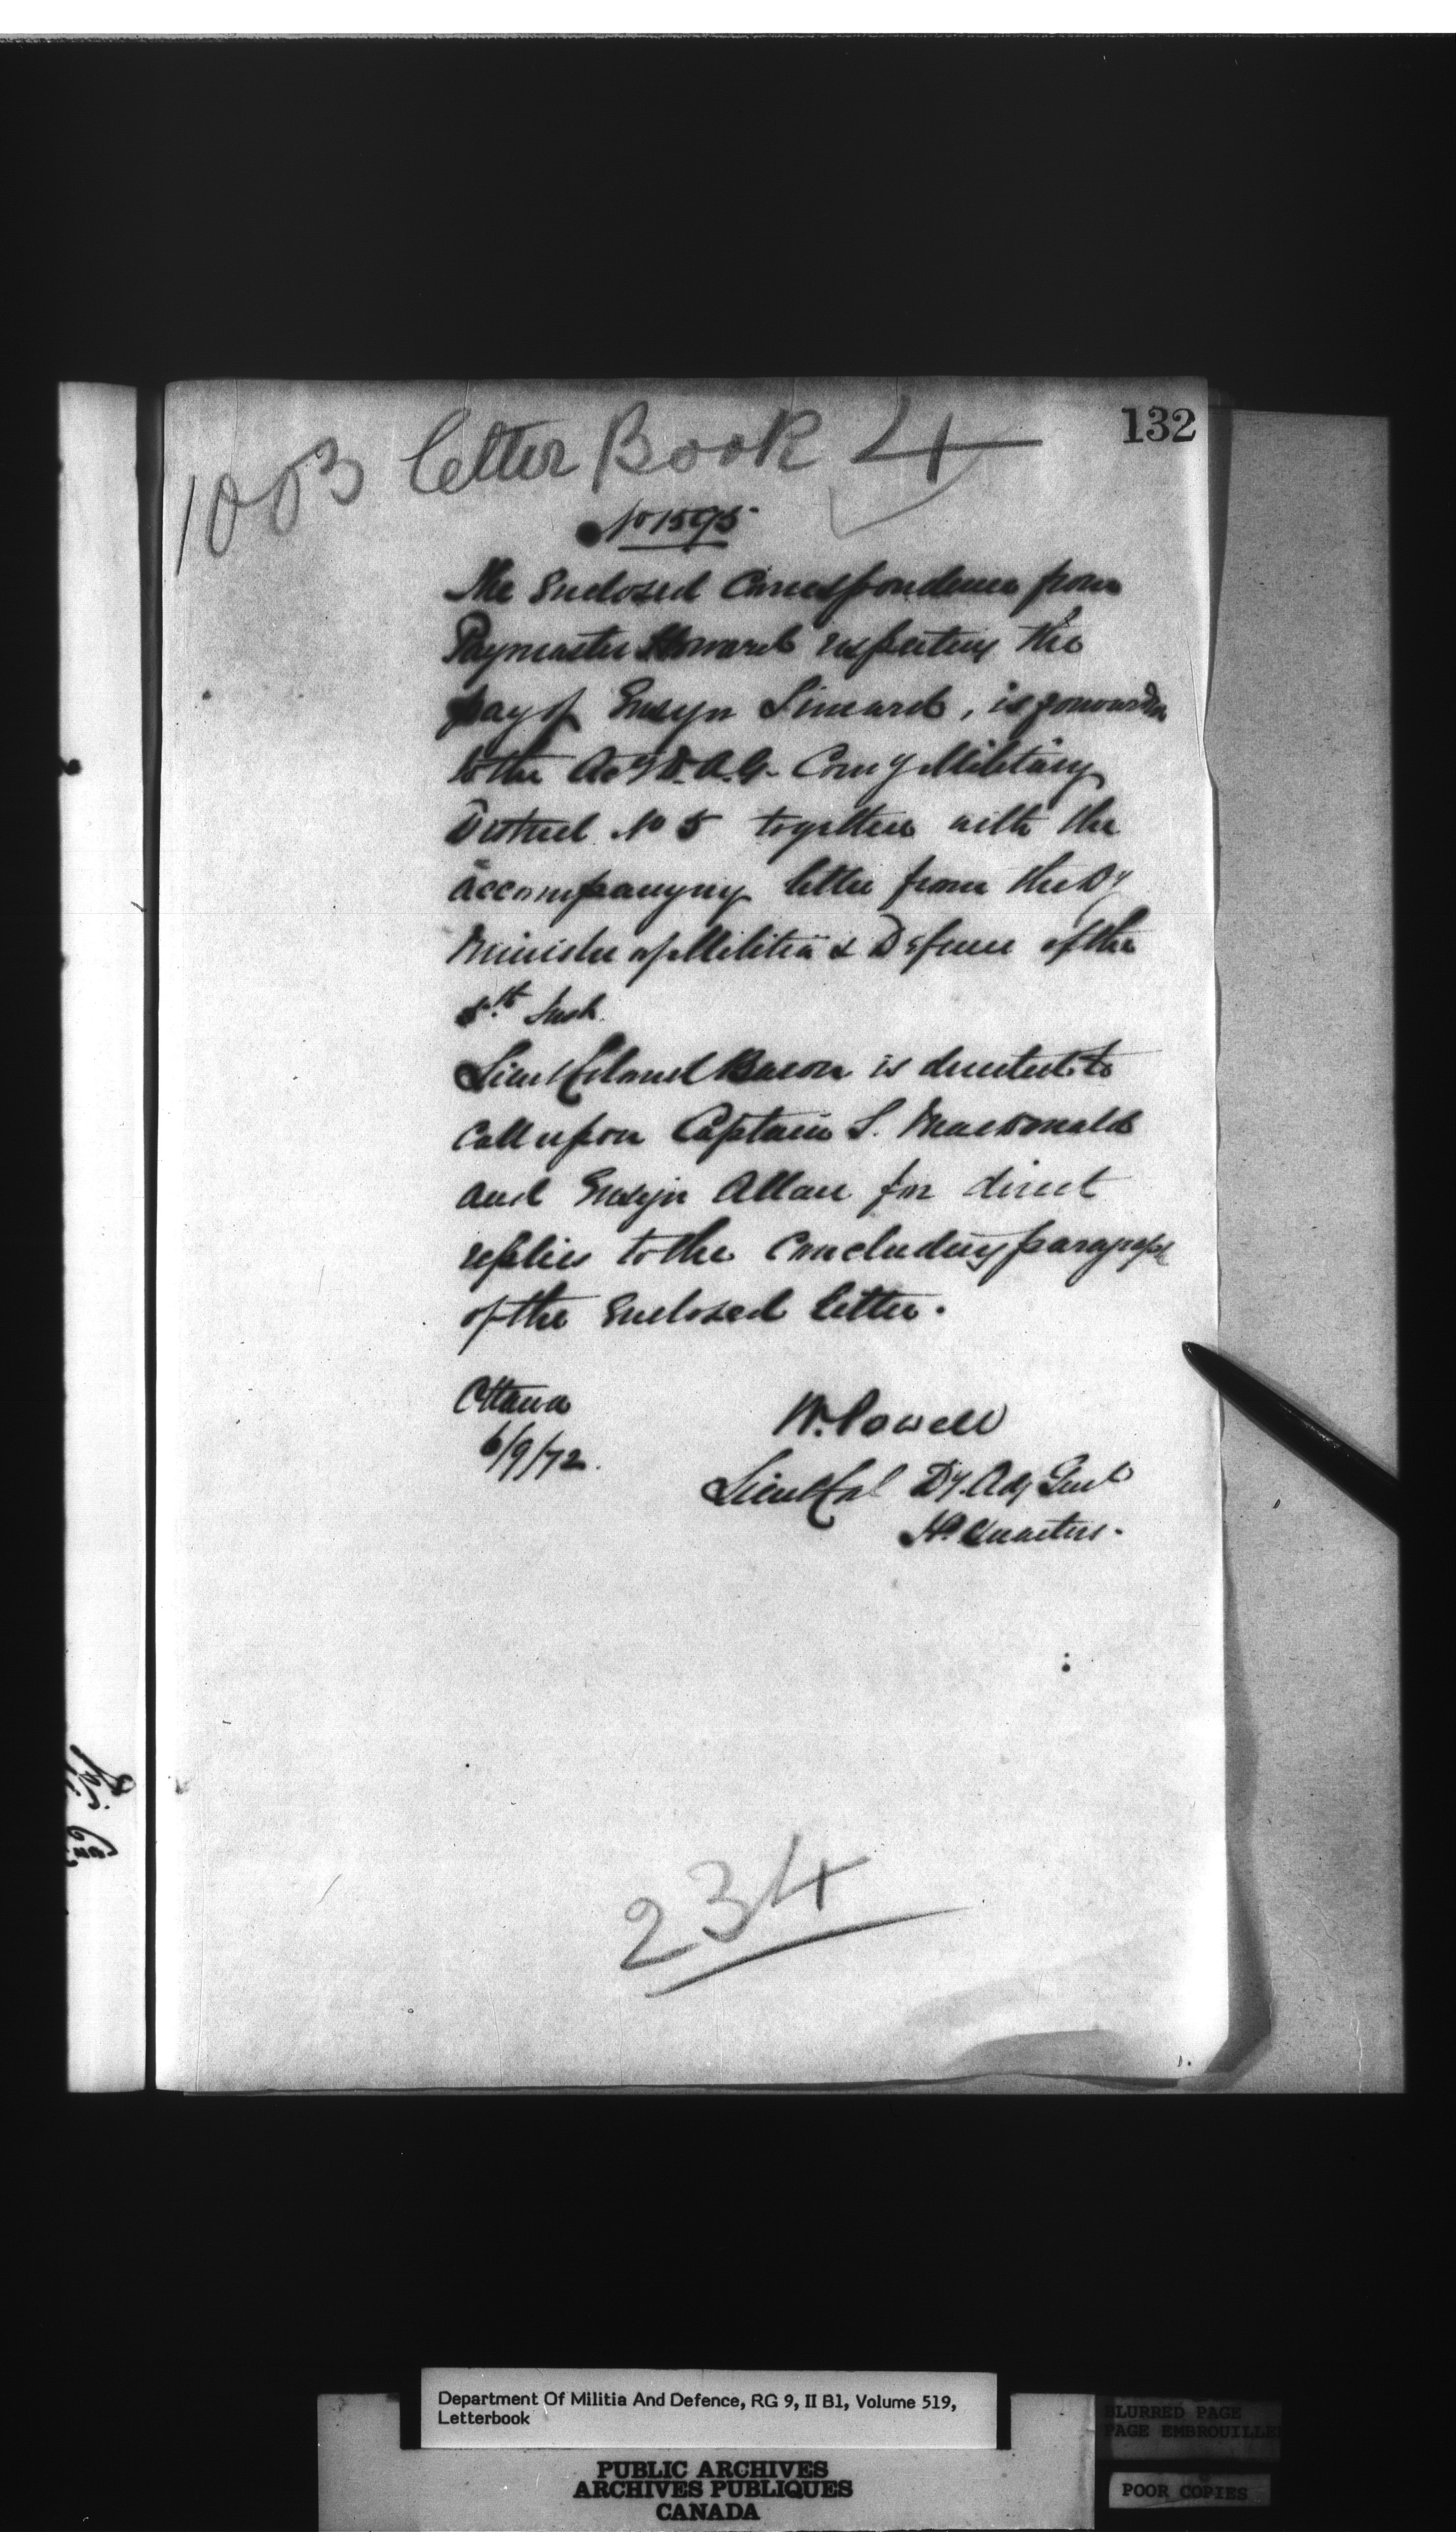 132
1003 Letter Book 4
No 1595
The Enclosed Correspondence from
Paymaster Howard respecting the
pay of Ensign Simard, is forwarded
to the Actg D.A.G. Comg Military
District No 5 together with the
accompanying letter from the Dy
Minister of Militia & Defence of the
5th Inst.
Lieut Colonel Bacon is directed to
Call upon Captain S. MacDonald
and Ensign Allan for direct
replies to the Concluding paragraph
of the Enclosed letter.
Ottawa
6/9/72.
W. Powell
Lieut Col Dy. Adj Genl
Hd. Quarters.
234
Department Of Militia And Defence, RG 9, II B1, Volume 519,
Letterbook
BLURRED PAGE
PAGE EMBROUILLE
PUBLIC ARCHIVES
ARCHIVES PUBLIQUES
CANADA
POOR COPIES